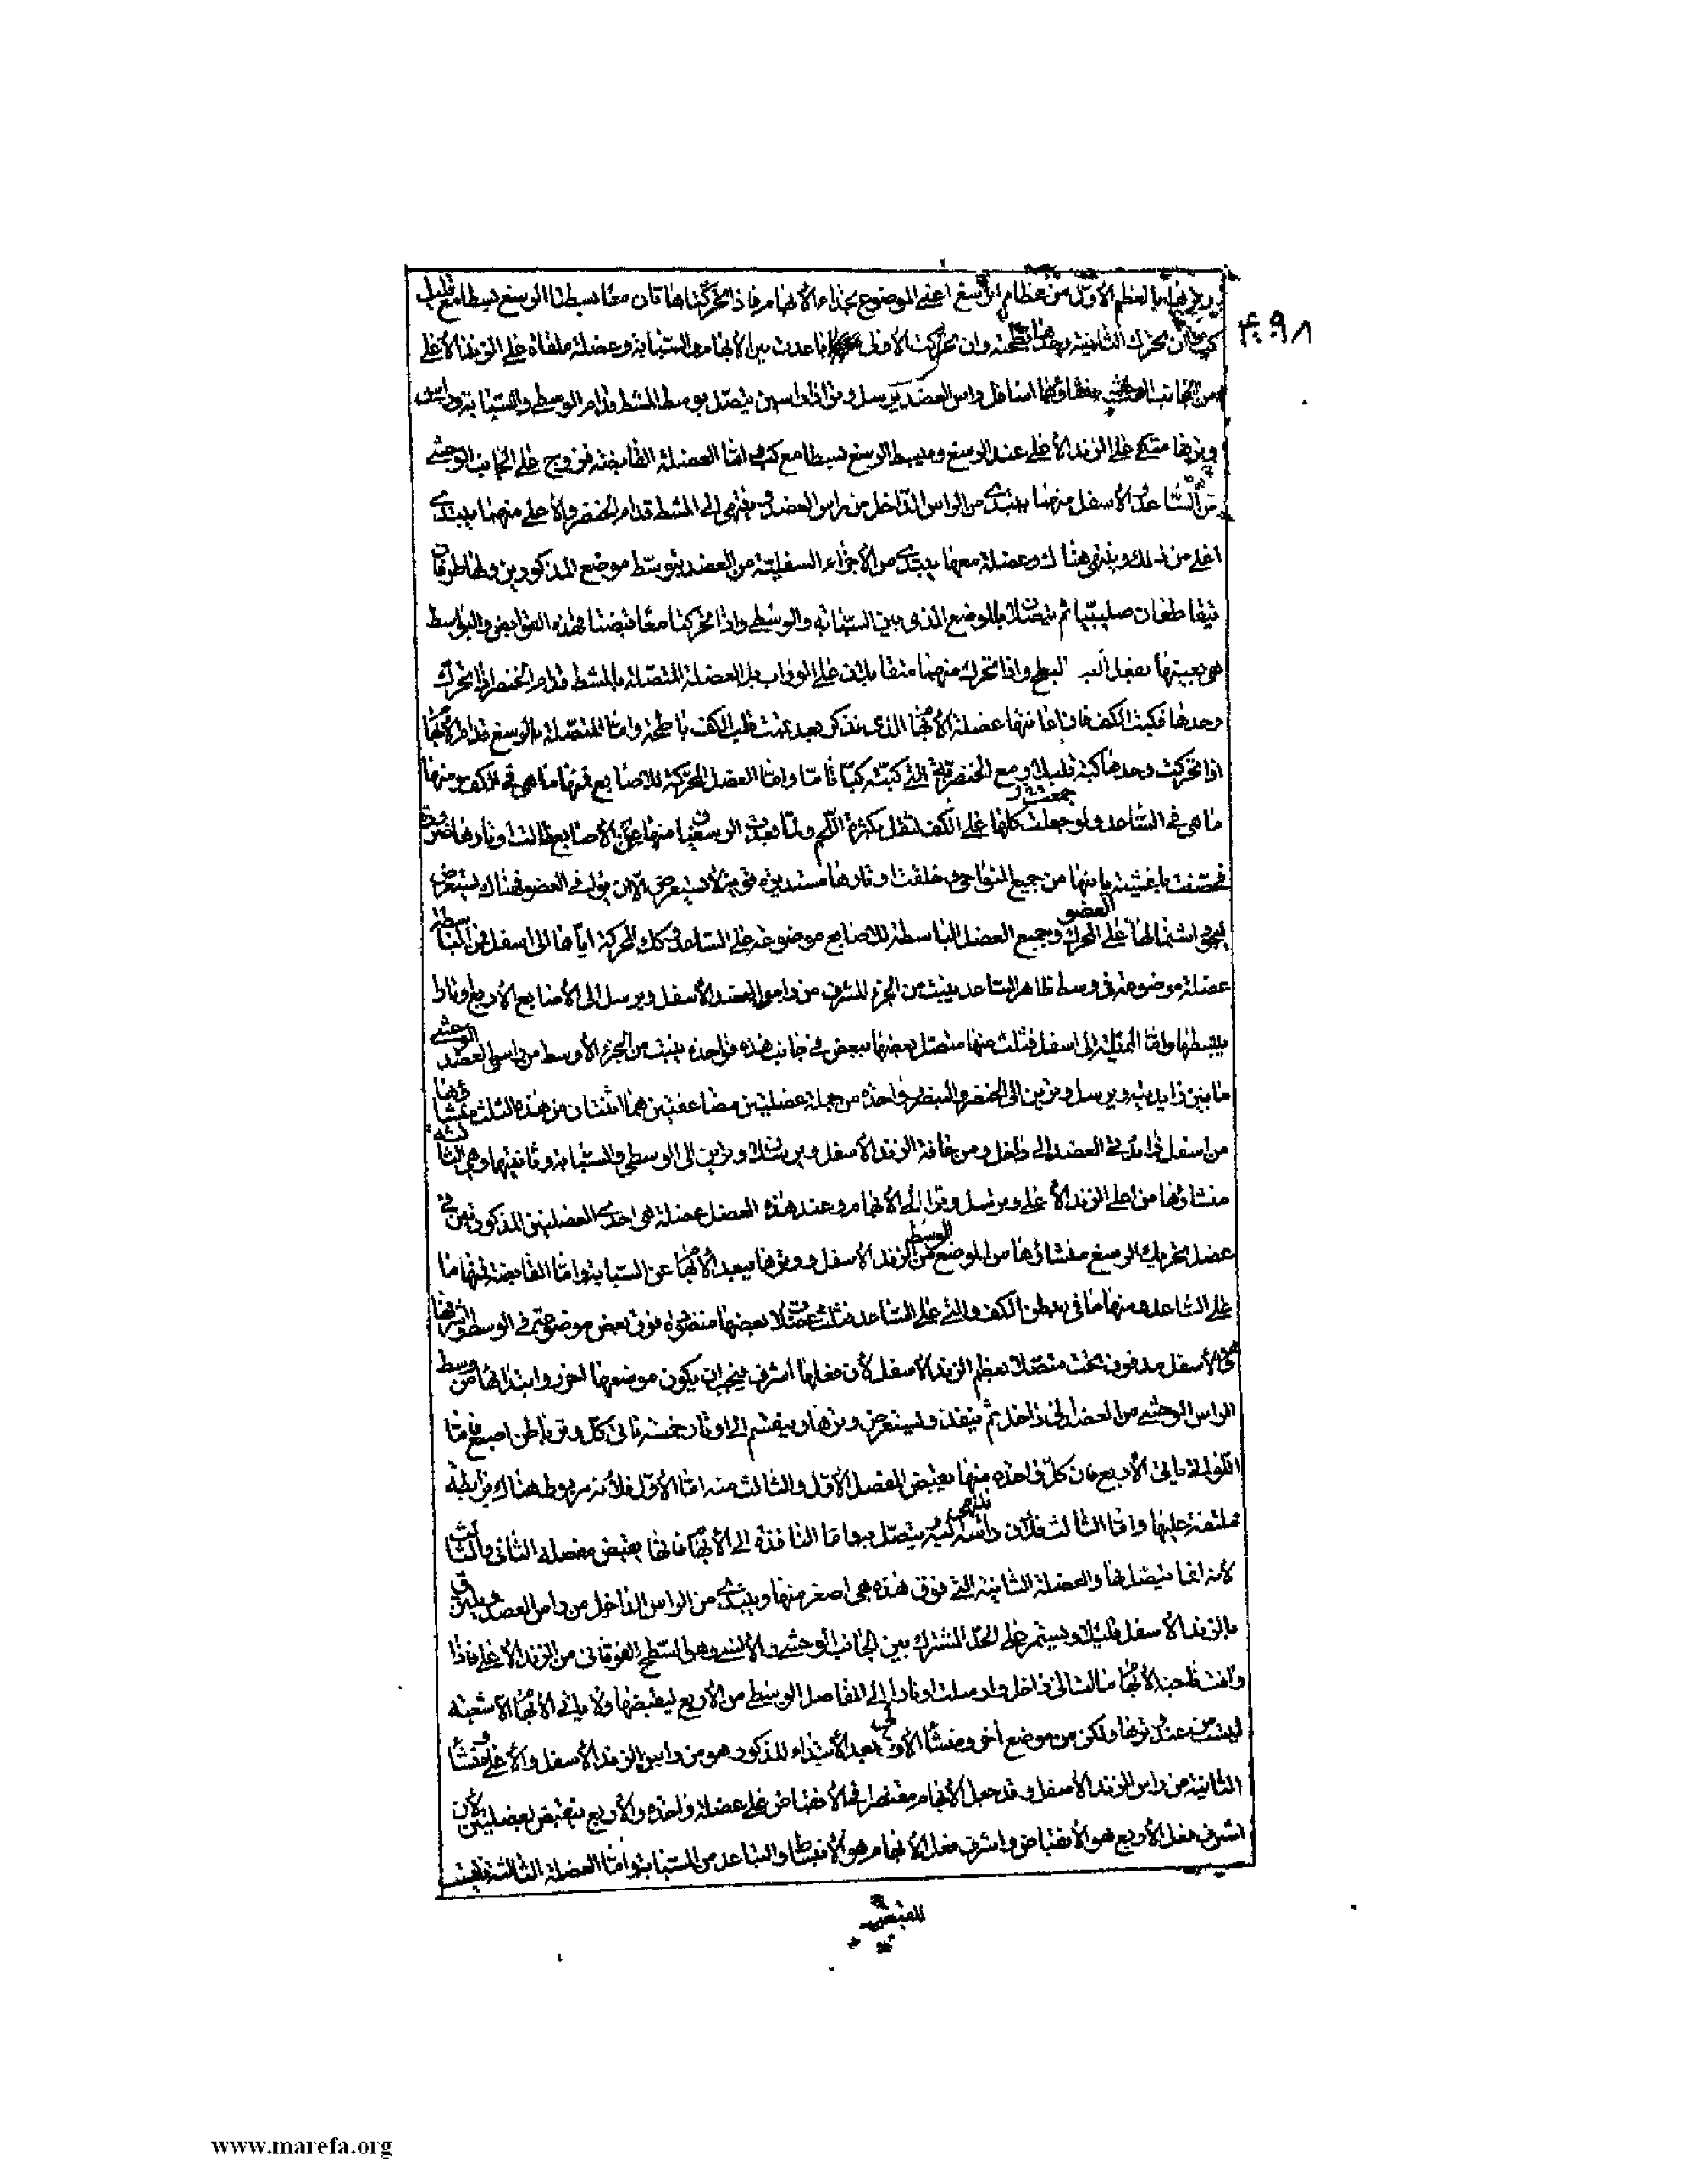 وترها بالعظم الأول من عظام الرسغ أعني الموضوع بحذاء الإبهام فإذا تحركتا هاتان معا بسطتا الرسغ بسطا مع قليل
۴۹۸
كب وإن تحرك الثانية وحدها بطحته وإن تحركت الأولى وحدها باعدت بين الإبهام والسبابة وعضلة ملقاة على الزند الأعلى
من الجانب الوحشي منشاؤها أسافل رأس العضد يرسل وترا ذا رأسين يتصل بوسط المشط قدام الوسطى والسبابة ورأس
وترها متكئ على الزند الأعلى عند الرسغ ويبسط الرسغ بسطا مع كب وأما العضلة القابضة فزوج على الجانب الوحشي
من الساعد والأسفل منهما يبتدئ من الرأس الداخل من رأس العضد وينتهي إلى المشط قدام الخنصر والأعلى منهما يبتدئ
أعلى من ذلك وينتهي هناك وعضلة معها يبتدئ من الأجزاء السفلية من العضد يتوسط موضع المذكورين ولها طرفان
يتقاطعان صليبيا ثم يتصلان بالموضع الذي بين السبابة والوسطى وإذا تحركتا معا قبضتا فهذه القوابض والبواسط
هي بعينها تفعل الكب البطح وإذا تحرك منهما متقابلتان على الوراب بل العضلة المتصلة بالمشط قدام الخنصر إذا تحرك
وحدها قلبت الكف فإن أعانتها عضلة الإبهام الذي نذكر بعد تمت قلب الكف باطحة وأما المتصلة بالرسغ قدام الإبهام
إذا تحركت وحدها كبته قليلا ومع الخنصرية التي كبته كبا تاما وأما العضل المحركة للأصابع فمنها ما هي في الكف ومنها
ما هي في الساعد ولو جعلت جمعت كلها على الكف لثقل بكثرة اللحم ولما بعدت الرسغيات منها عن الأصابع طالت أوتارها ضرورة
فحصنت بأغشية يأتيها من جميع النواحي وخلقت أوتارها مستديرة قوية لا تستعرض إلا أن يوافي العضو فهناك يستعرض
ليجود اشتمالها على العضو المحرك وجميع العضل الباسطة للأصابع موضوعة على الساعد وكذلك المحركة إياها إلى أسفل فمن الباسطة
عضلة موضوعة في وسط ظاهر الساعد ينبت من الجزء المشرف من رأس العضد الأسفل ويرسل إلى الأصابع الأربع أوتارا
يبسطها وأما المميلة إلى أسفل فثلث منها متصل بعضها ببعض في جانب هذه فواحدة ينبت من الجزء الأوسط من رأس العضد الوحشي
ما بين زايدتيه ويرسل وترين إلى الخنصر والبنصر وواحدة من جملة عضلتين مضاعفتين هما اثنتان من هذه الثلث منشاؤهما
من أسفل زايدتي العضد إلى داخل ومن حافة الزند الأسفل ويرسلان وترين إلى الوسطى والسبابة وثانيتهما وهي الثالثة
منشاؤها من أعلى الزند الأعلى ويرسل وترا إلى الإبهام وعند هذه العضل عضلة هي إحدى العضلتين المذكورتين في
عضل تحريك الرسغ منشاؤها من الموضع الوسط من الزند الأسفل ووترها يبعد الإبهام عن السبابة وأما القابضة فمنها ما
على الساعد ومنها ما في بطن الكف والتي على الساعد ثلث عضلات بعضها منضود فوق بعض موضوعة في الوسط وأشرفها
هو الأسفل مدفون تحت متصل بعظم الزند الأسفل لأن فعلها أشرف فيجب أن يكون موضعها أحرز وابتداؤها من وسط
الرأس الوحشي من العضد إلى داخل ثم ينفذ ويستعرض وترها وينقسم إلى أوتار خمسة يأتي كل وتر باطن إصبع فأما
اللواتي يأتي الأربع فإن كل واحدة منها يقبض المفصل الأول والثالث منه أما الأول فلأنه مربوط هناك برابطة
ملتفة عليها وأما الثالث فلأن رأسه ينتهي إليه يتصل به وأما النافذة إلى الإبهام فإنها يقبض مفصله الثاني والثالث
لأنه إنما يتصل بها والعضلة الثانية التي فوق هذه هي أصغر منها ويبتدئ من الرأس الداخل من رأس العضد ويلتزق
بالزند الأسفل قليلا ويستمر على الحد المشترك بين الجانب الوحشي والإنسي وهو السطح الفوقاني من الزند الأعلى فإذا
وافت ناحية الإبهام مالت إلى داخل وأرسلت أوتارا إلى المفاصل الوسطى من الأربع ليقبضها ولا يأتي الإبهام إلا شعبة
ليست من عند وترها ولكن من موضع آخر ومنشأ الأولى بعد الابتداء المذكور هو من رأس الزند الأسفل والأعلى ومنشأ
الثانية من رأس الزند الأسفل وقد جعل الإبهام مقتصرا في الانقباض على عضلة واحدة والأربع ينقبض بعضلتين لأن
أشرف فعل الأربع هو الانقباض وأشرف فعل الإبهام هو الانبساط والتباعد من السبابة وأما العضلة الثالثة فليست
للقبض
www.marefa.org